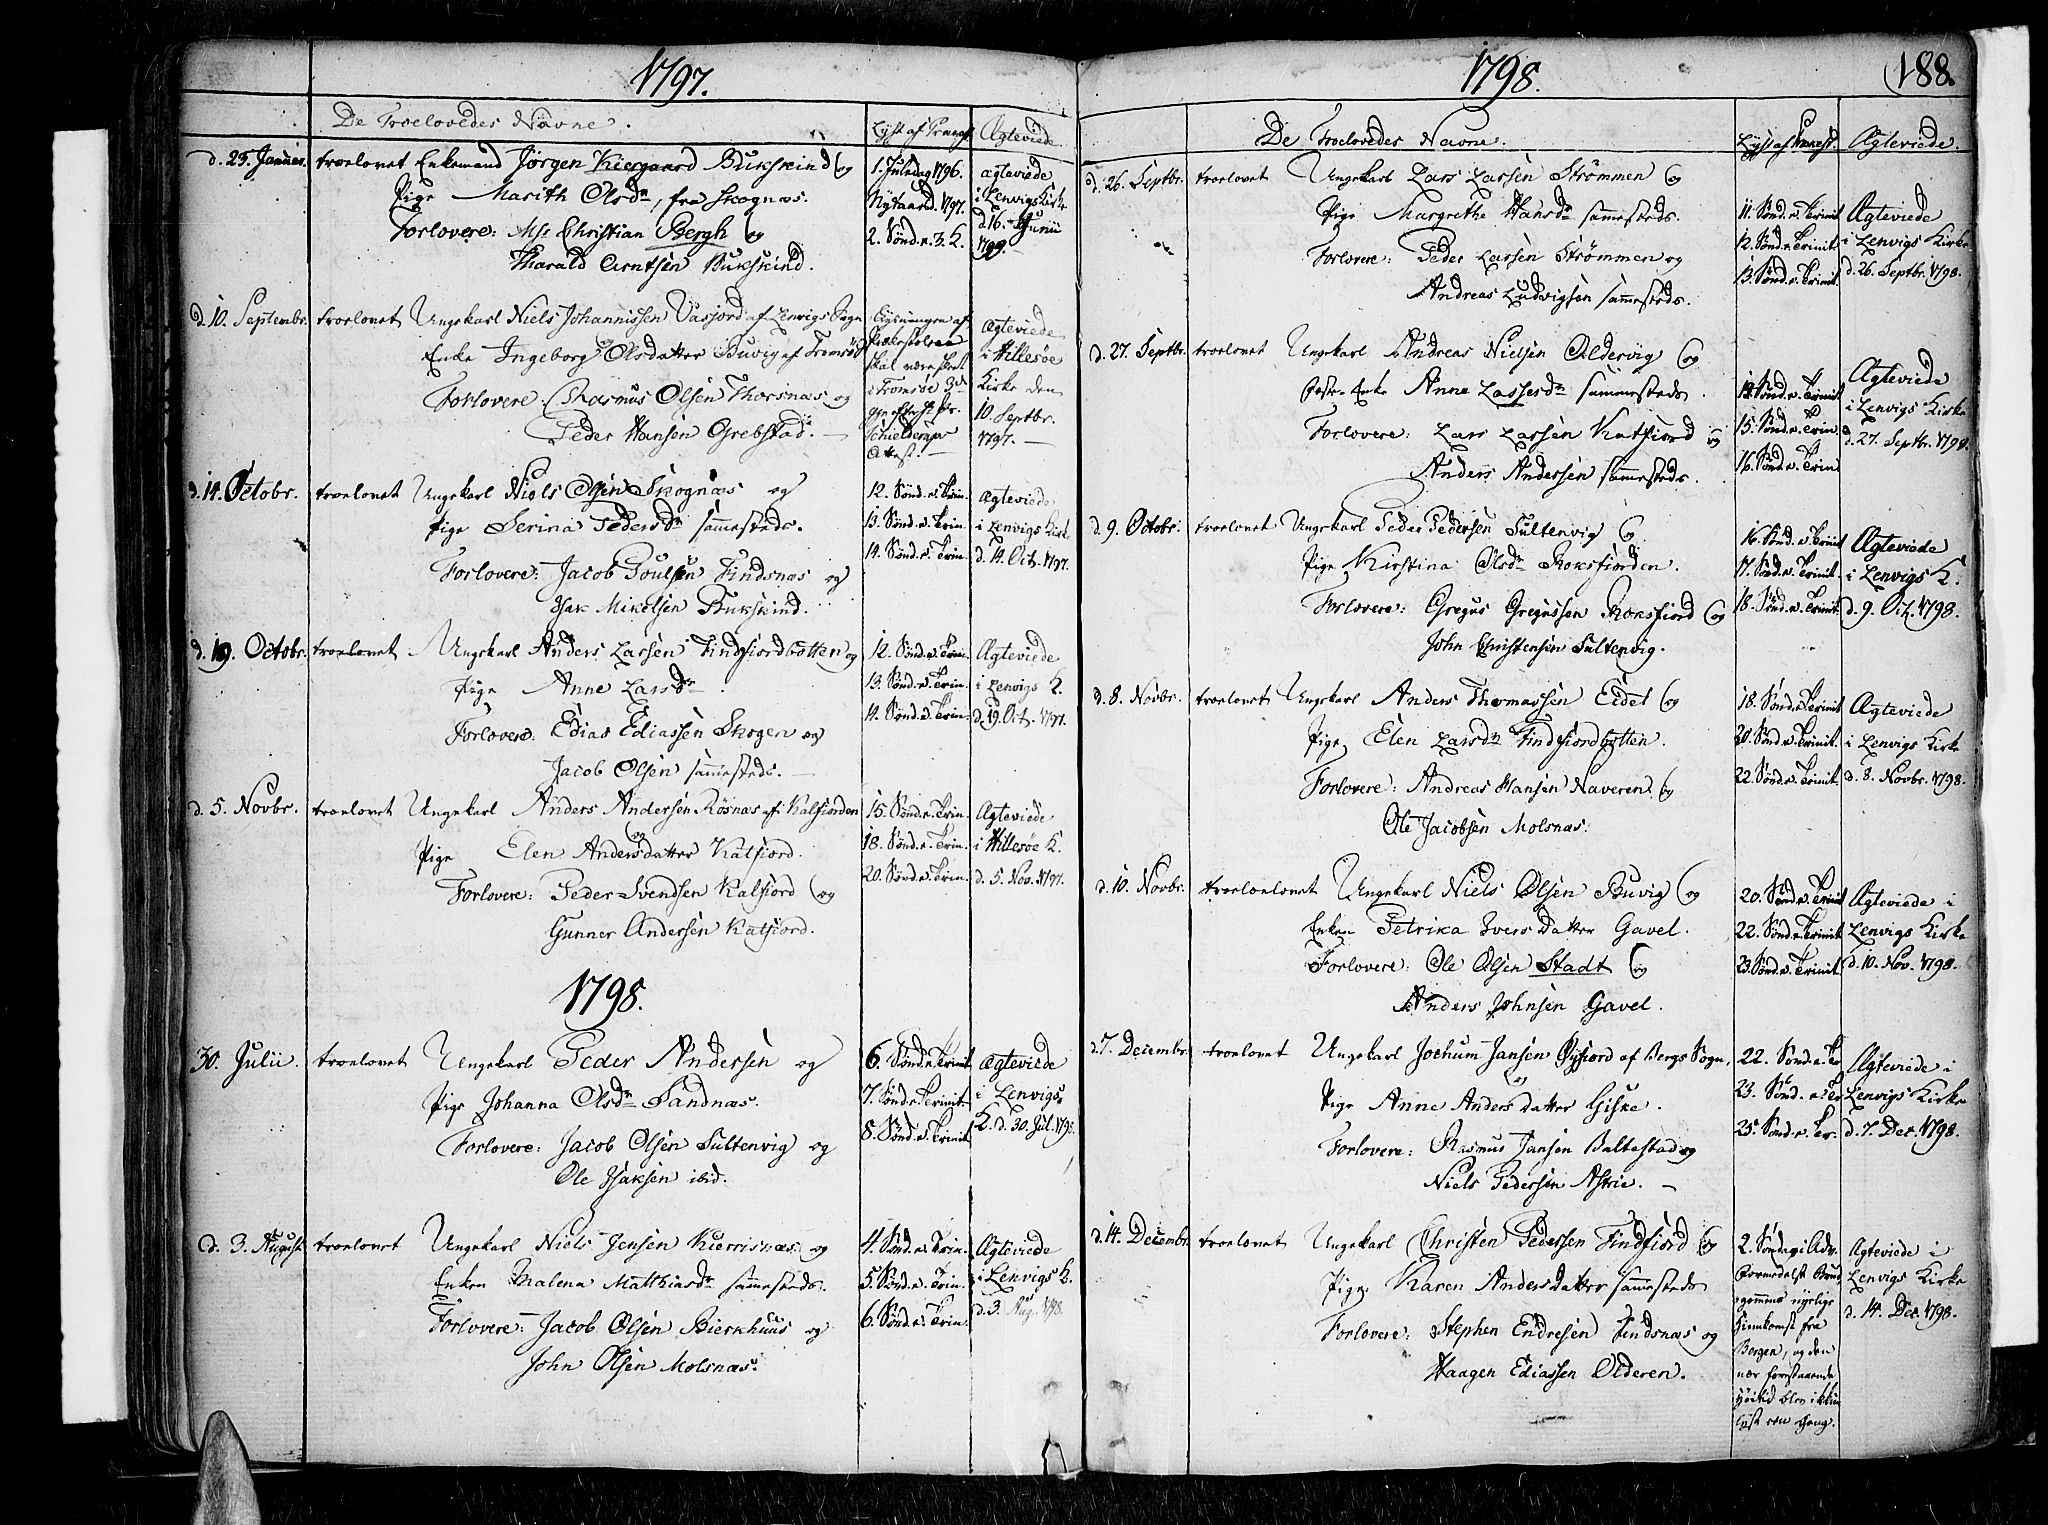 1797.
De Troelovedes Navne.
Lyst af Prædst.
Ægteviede
d. 23. Januar. troelovet Enkemand Jörgen Kiergaard Bukskind og
Pige Marith Olsdr, fra Skognæs.
Forlovere: Mse Christian Bergh og
Tharald Arntsen Bukskind.
1. Juledag 1796.
Nytaarsd. 1797.
2. Sønd. e. 3. K.
ægteviede
i Lenvigs Kirk
d. 16.
d. 10. Septembr. troelovet Ungekarl Niels Johannissen Vasjord af Lenvigs Sogn
og
Enke Ingeborg Olsdatter Buvig af Tromsöe
Forlovere: Rasmus Olsen Thorsnæs og
Peder Hansen Grebstad. —
Lysningen af
Prækestolen
skal være skeet
i Tromsöe 3de
gge efter Hr.
Schielderups
Attest. —
Ægteviede
i Hillesøe
Kirke den
10. Septbr.
1797. —
d. 14. Octobr. troelovet Ungekarl Niels Olsen Skognæs og
Pige Serina Pedersdr sammesteds.
Forlovere: Jacob Poulsen Findsnæs og
Isak Mikelsen Bukskind.
12. Sønd. e. Trin.
13. Sønd. e. Trin.
14. Sønd. e. Trin.
Ægteviede
i Lenvigs Kirk
d. 14. Oct. 1797.
d. 19. Octobr. troelovet Ungekarl Anders Larsen Findfiordbotten og
Pige Anne Larsdr
Forlovere: Edias Ediassen Skogen og
Jacob Olsen sammesteds. —
12. Sønd. e. Trin.
13. Sønd. e. Trin.
14. Sønd. e. Trin.
Ægteviede
i Lenvigs K.
d. 19. Oct. 1797.
d. 5. Novbr. troelovet Ungekarl Anders Andersen Røsnæs af Kalfiorden
og
Pige Elen Andersdatter Kalfiord.
Forlovere: Peder Svendsen Kalfiord og
Gunner Andersen Kalfiord.
15. Sønd. e. Trin.
18. Sønd. e. Trin.
20. Sønd. e. Trin.
Ægteviede
i Hillesøe K.
d. 5. Nov. 1797.
1798.
30. Julii. troelovet Ungekarl Peder Andersen og
Pige Johanna Olsdr Sandnæs.
Forlovere: Jacob Olsen Sultenvig og
Ole Isaksen ibid.
6. Sønd. e. Trinit
7. Sønd. e. Trinit.
8. Sønd. e. Trinit
Ægteviede
i Lenvigs
K. d. 30. Jul. 1798.
d. 3. August troelovet Ungekarl Niels Jensen Kierrisnæs og
Enken Malena Matthiasdr sammesteds.
Forlovere: Jacob Olsen Bierkhuus og
John Olsen Molsnæs.
4. Sønd. e. Trin.
5. Sønd. e. Trin.
6. Sønd. e. Trin.
Ægteviede
i Lenvigs K.
d. 3. Aug. 1798.
1798.
188.
De Troelovedes Navne.
Lyst af Prædst.
Ægteviede.
d. 26. Septbr. troelovet Ungekarl Lars Larsen Strömmen og
Pige Margrethe Hansdr sammesteds.
Forlovere: Peder Larsen Strømmen og
Andreas Ludvigsen sammesteds.
11. Sønd. e. Trinit
12. Sønd. e. Trinit.
13. Sønd. e. Trinit.
Ægteviede
i Lenvigs Kirke
d. 26. Septbr. 1798.
d. 27. Septbr. troelovet Ungekarl Andreas Nielsen Oldervig og
Enke Anne Lassesdr sammesteds.
Forlovere: Lars Larsen Katfiord og
Anders Andersen sammesteds.
14. Sønd. e. Trinit
15. Sønd. e. Trin.
16. Sønd. e. Trin
Ægteviede
i Lenvigs Kirke
d. 27. Septbr. 1798.
d. 9. Octobr. troelovet Ungekarl Peder Pedersen Sultenvig og
Pige Kirstina Olsdr Roksfiorden.
Forlovere: Gregus Gregussen Roksfiord og
John Christensen Sultenvig.
16. Sønd. e. Trinit
17. Sønd. e. Trinit.
18. Sønd. e. Trinit.
Ægteviede
i Lenvigs K.
d. 9. Oct. 1798.
d. 8. Novbr. troelovet Ungekarl Anders Thomassen Eidet og
Pige Elen Larsdr Findfiordbotten.
Forlovere: Andreas Hansen Naveren og
Ole Jacobsen Molsnæs.
18. Sønd. e. Trinit
20. Sønd. e. Trinit.
22. Sønd. e. Trinit.
Ægteviede
i Lenvigs Kirke
d. 8. Novbr. 1798.
d. 10. Novbr. troeloelovet Ungekarl Niels Olsen Buvig og
Enken Petrika Ivers Datter Gavel.
Forlovere: Ole Olsen Stadt og
Anders Johnsen Gavel.
20. Sønd. e. Trinit
22. Sønd. e. Trinit
23. Sønd. e. Trinit.
Ægteviede i
Lenvigs Kirke
d. 10. Nov. 1798.
d. 7. Decembr. troelovet Ungekarl Jochum Jansen Øyfiord af Bergs Sogn,
og
Pige Anne Anders Datter Giske.
Forlovere: Rasmus Jansen Baltestad og
Niels Pedersen Astrie. —
22. Sønd. e. Tr
23. Sønd. e. Tr
25. Sønd. e. Tr.
Ægteviede i
Lenvigs Kirke
d. 7. Dec. 1798.
d. 14. Decembr. troelovet Ungekarl Christen Pedersen Findfiord og
Pige Karen Anders Datter sammesteds
Forlovere: Stephen Endresen Findsnæs og
Haagen Ediassen Olderen.
2. Søndag i Adv.
Formedelst Brud
gommens nyelige
Hiemkomst fra
Bergen, og den
nær forestaaende
Høitid blev ikkun
lyst een Gang.
Ægteviede i
Lenvigs Kirke
d. 14. Dec. 1798.